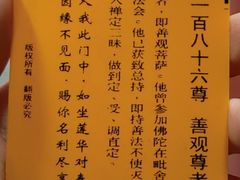 一百八十六尊　善观尊者
，即善观菩萨。他曾参加佛陀在毗舍
法会。他已获致总持，即持善法不使灭
入禅定三昧，做到定、受、调直定。
入我此门中，如坐莲华对
因缘不见面，赐你名利尽
版权所有　翻版必究